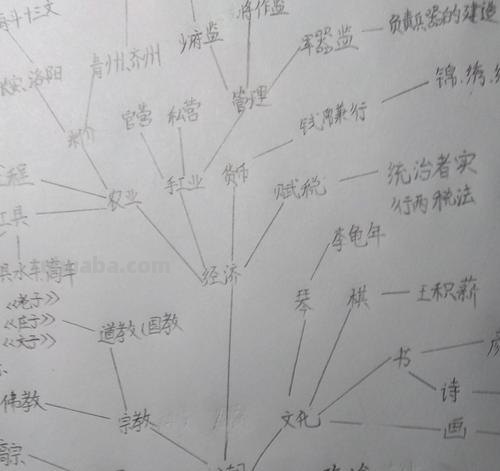 将作监
每斗十三文
少府监
军器监
负责兵器的建造
长安、洛阳
青州、齐州
官营
私营
管理
钱帛兼行
锦、绣、
米价
工程
农业
手工业
货币
赋税
统治者实
行两税法
工具
李龟年
具水车筒车
经济
《老子》
《庄子》
《文子》
道教(国教
琴
棋
王积薪
书
诗
画
佛教
宗教
文化
高宗